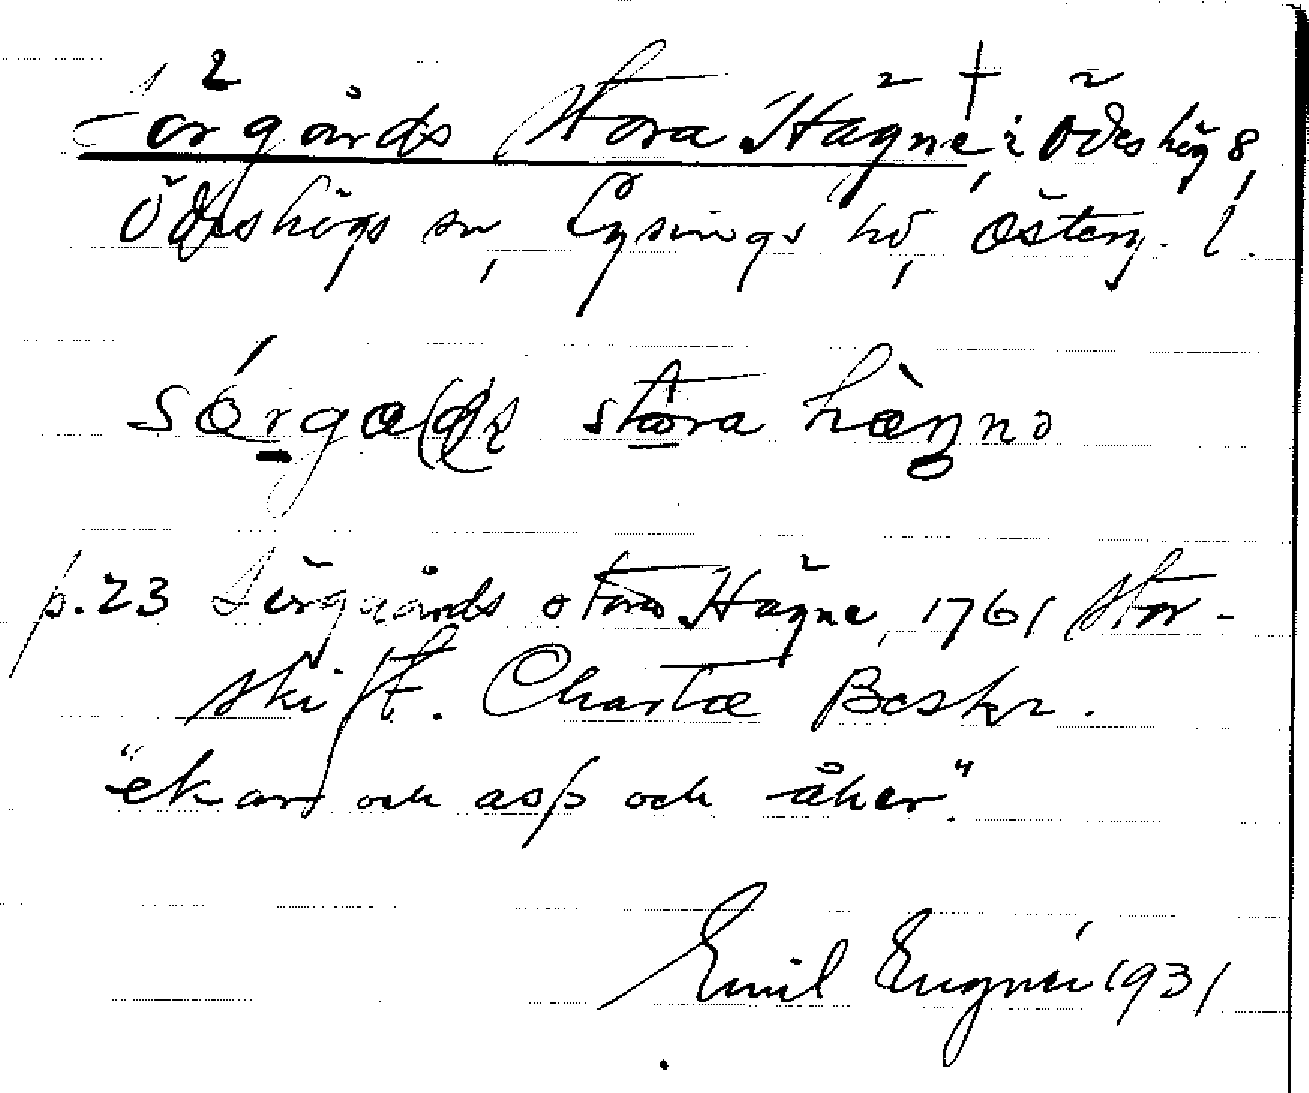 Sörgårds Stora Hägne, † i Ödeshög 8,
Ödeshögs sn, Lysings hd, Österg. l.
stora hægnə
p. 23 Sörgaards stora Hägne, 1761 Stor-
skift. Charta Beskr.
"ek och asp och åker".
Emil 1931